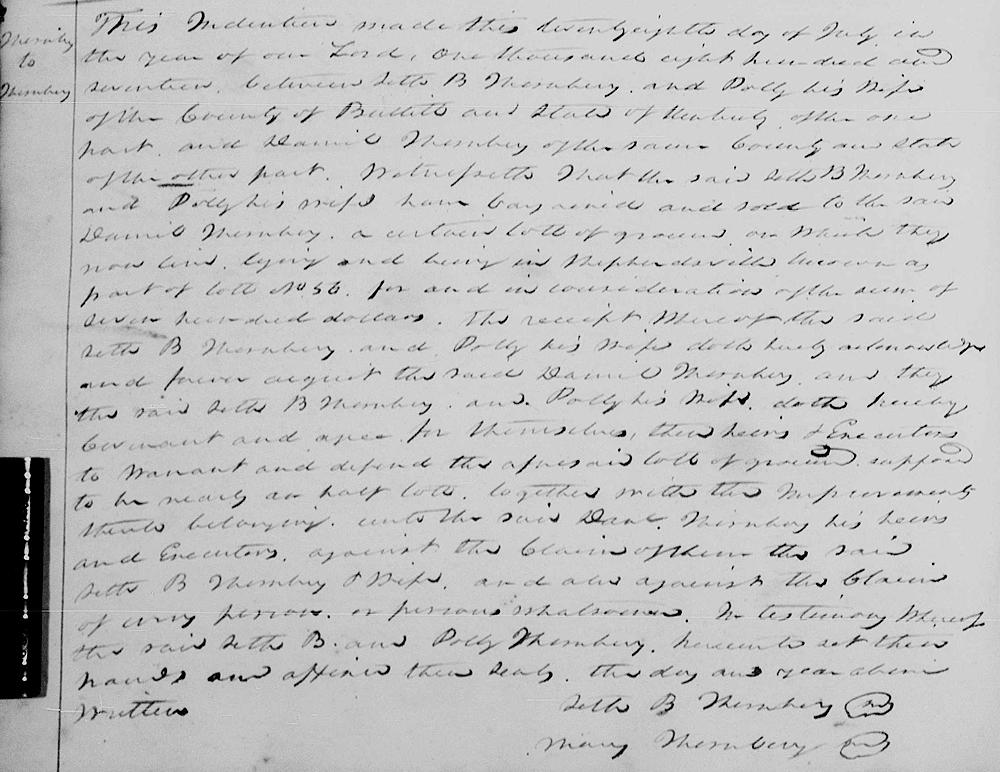 Thornbery
to
Thornbery
This Indenture made this twentyeighth day of July in
the year of our Lord, One thousand eight hundred and
seventeen, between Seth B Thornbery and Polly his Wife
of the County of Bullitt and State of Kentucky of the one
part, and Daniel Thornbery of the same County and State
of the other part. Witnesseth That the said Seth B Thornbery
and Polly his wife have bargained and sold to the said
Daniel Thornbery, a certain lott of ground on which they
now live lying and being in Shepherdsville known as
part of lott No 56. for and in consideration of the sum of
seven hundred dollars, the receipt Whereof the said
Seth B Thornbery and Polly his Wife doth hereby acknowledge
and forever acquit the said Daniel Thornbery, and they
the said Seth B Thornbery and Polly his Wife, doth hereby
Covenant and agree for themselves, their heirs & Executors
to Warrant and defend the aforesaid lott of ground suppose
to be nearly an half lott, together with the Improvements
thereto belonging, unto the said Danl. Thornbery his heirs
and Executors, against the Claim of them the said
Seth B Thornbery & Wife, and also against the Claim
of every person, or persons whatsoever. In testimony Whereof
the said Seth B. and Polly Thornbery, hereunto set their
hands and affixed their seals, the day and year above
Written
Seth B Thornbery
Mary Thornbery